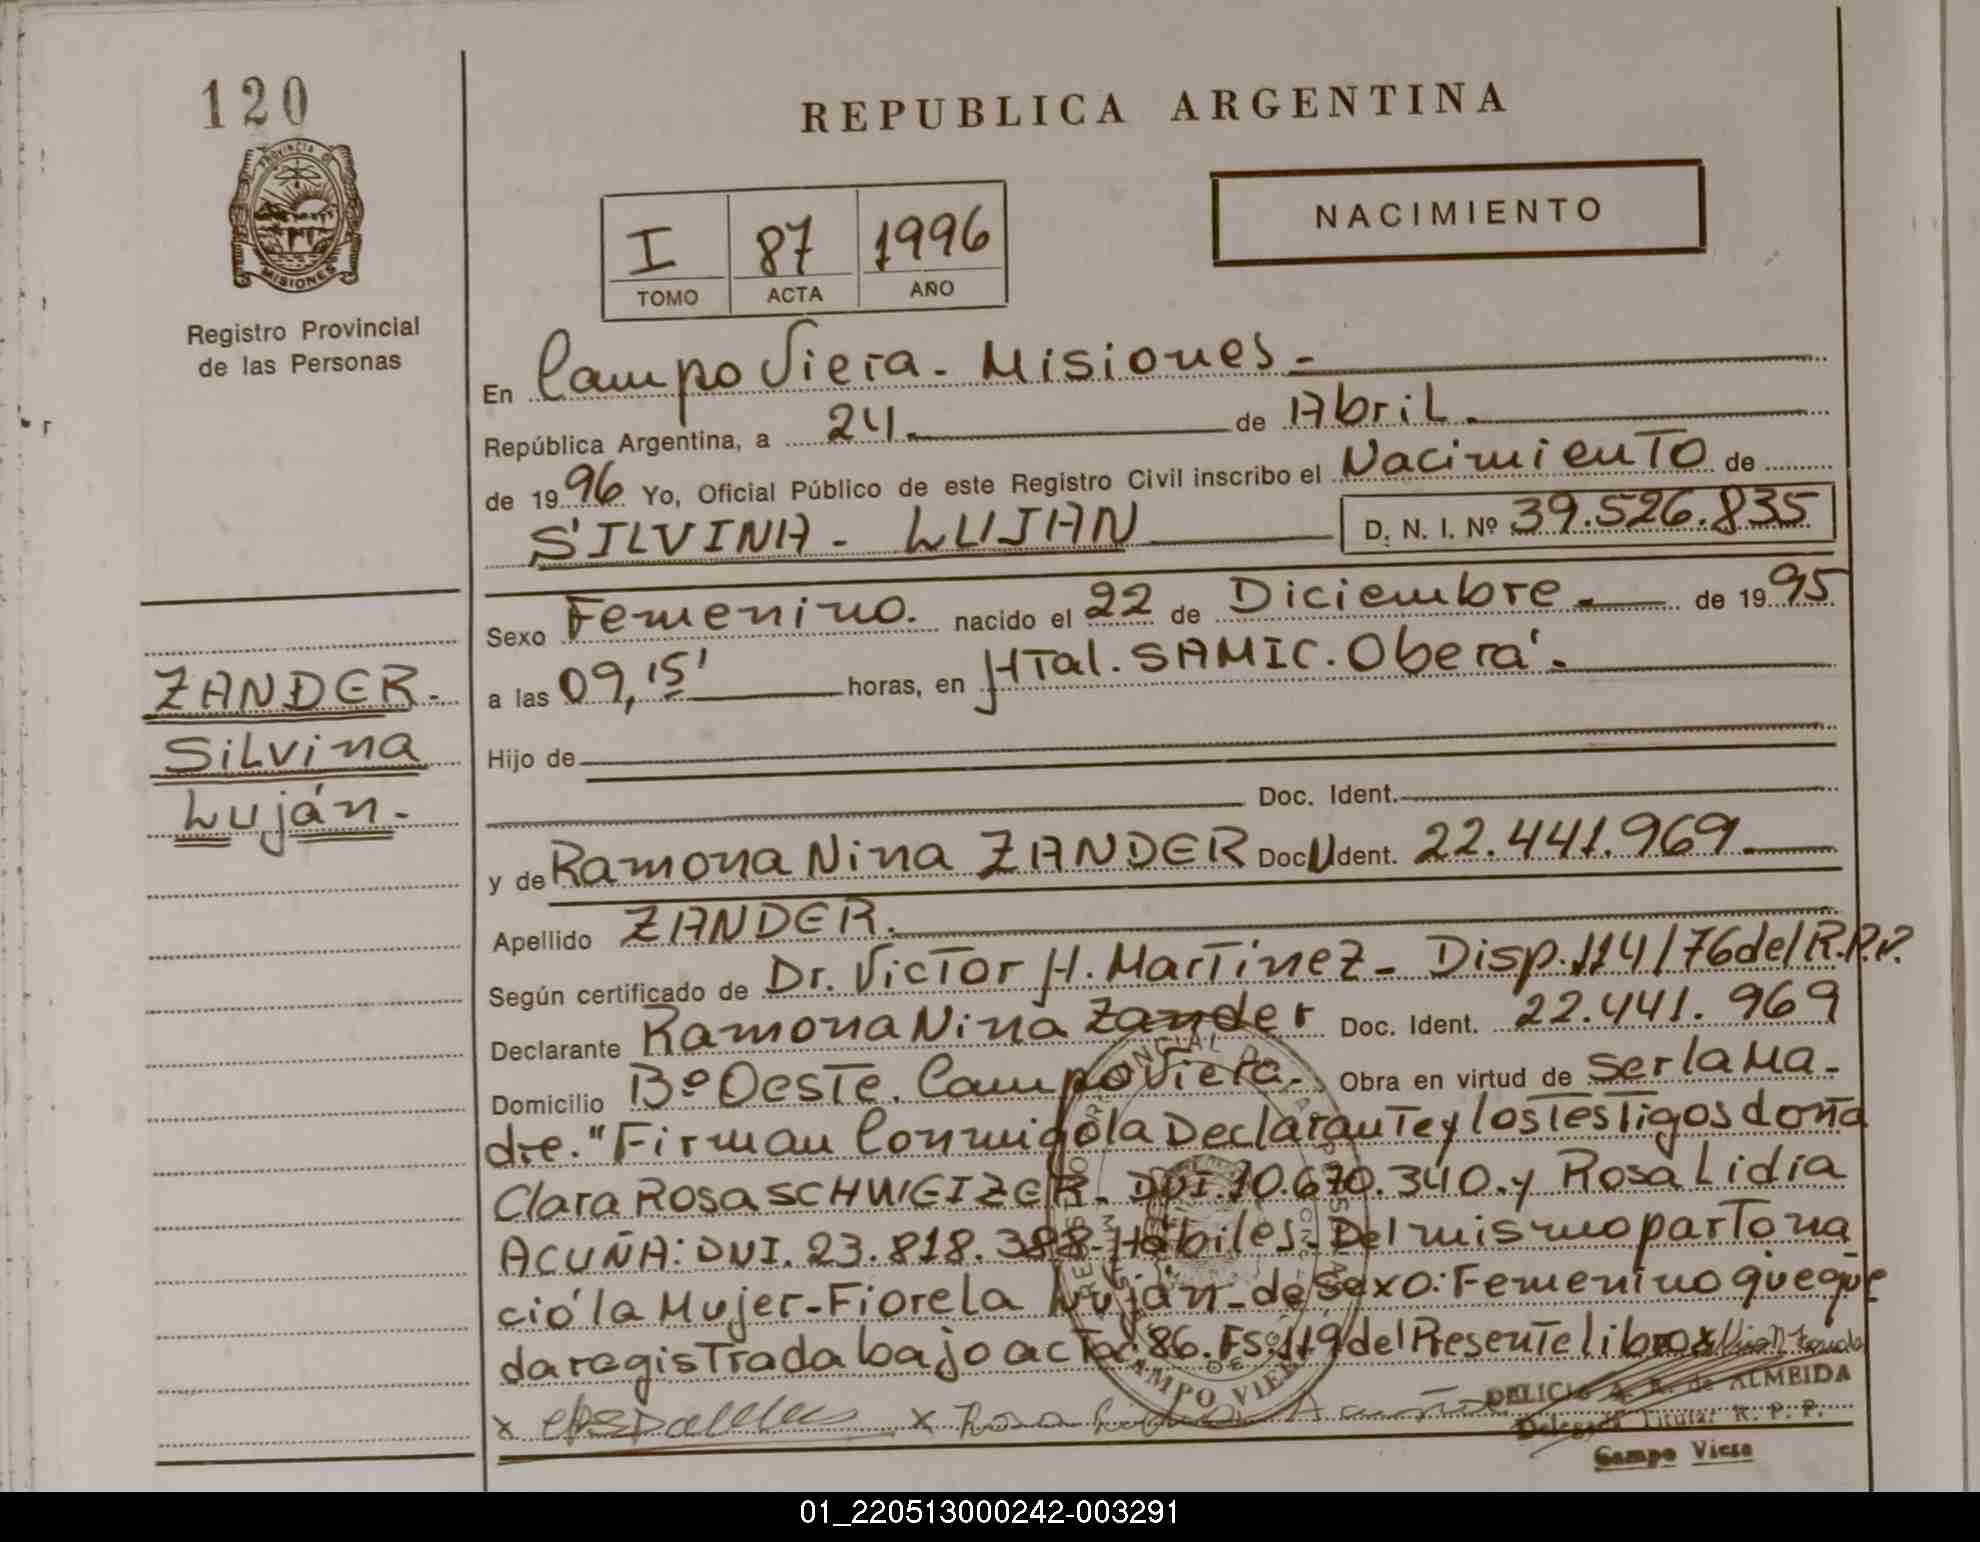 120
REPUBLICA ARGENTINA
PROVINCIA DE
MISIONES
NACIMIENTO
I 87 1996
TOMO ACTA AÑO
Registro Provincial
de las Personas
En Campo Viera - Misiones -
República Argentina, a 24 de Abril.
de 1996 Yo, Oficial Público de este Registro Civil inscribo el Nacimiento de
SILVINA - LUJAN D. N. I. Nº 39.526.835
Sexo Femenino. nacido el 22 de Diciembre. de 1995
a las 09,15' horas, en HTal. SAMIC. Oberá.
Hijo de
Doc. Ident.
y de Ramona Nina ZANDER Doc. Ident. 22.441.969.
Apellido ZANDER.
Según certificado de Dr. Victor H. Martínez - Disp. 114/76 del R.P.P.
Declarante Ramona Nina Zander Doc. Ident. 22.441.969
Domicilio Bº Oeste. Campo Viera. Obra en virtud de ser la Ma-
dre. "Firman Conmigo la Declarante y los Testigos doña
Clara Rosa SCHWEIZER. DNI. 10.670.340. y Rosa Lidia
ACUÑA: DNI. 23.818.388- Hábiles. Del mismo parto na
ció la Mujer - Fiorela Luján - de sexo: Femenino que que
da registrada bajo acta: 86. Fs: 119 del Presente libro x
x x Rosa Acuña
DELICIA A. R. de ALMEIDA
Delegada Titular R. P. P.
Campo Viera
ZANDER.
Silvina
Luján.
CAMPO VIERA
01_220513000242-003291